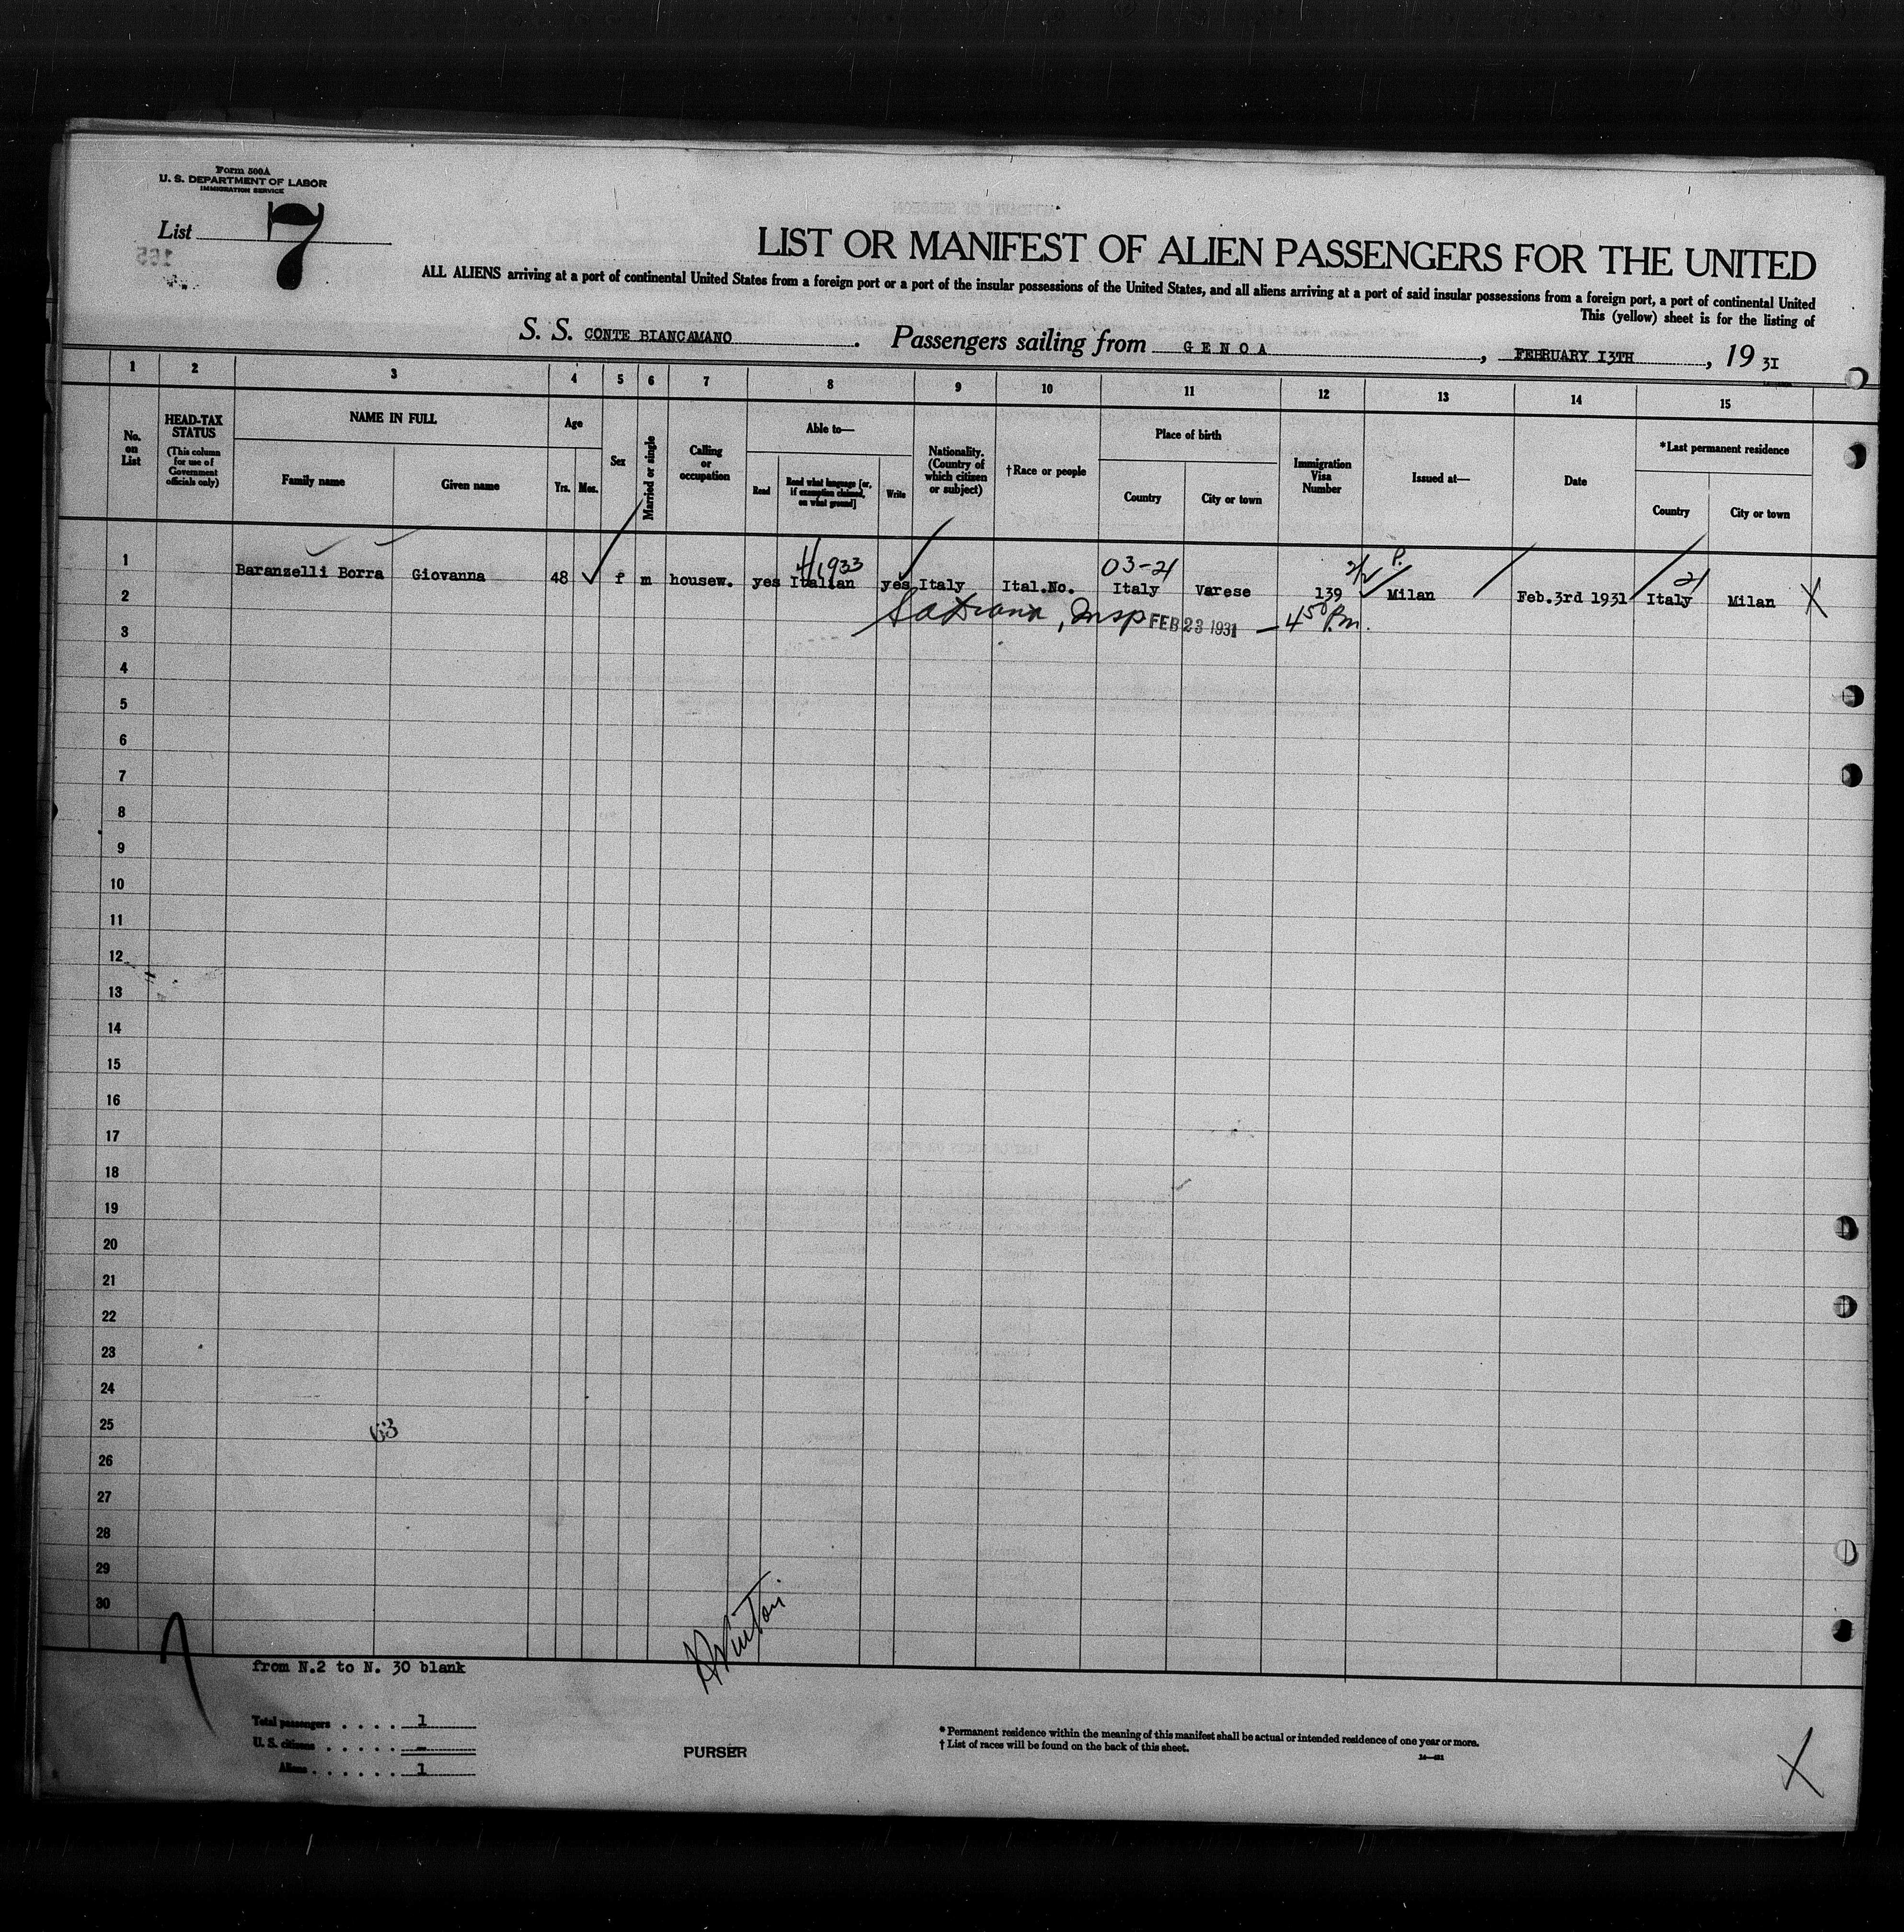 Form 500A
U. S. DEPARTMENT OF LABOR
IMMIGRATION SERVICE
List 7
165
LIST OR MANIFEST OF ALIEN PASSENGERS FOR THE UNITED
ALL ALIENS arriving at a port of continental United States from a foreign port or a port of the insular possessions of the United States, and all aliens arriving at a port of said insular possessions from a foreign port, a port of continental United
This (yellow) sheet is for the listing of
S. S. CONTE BIANCAMANO. Passengers sailing from GENOA, FEBRUARY 13TH, 19 31
1 2 3 4 5 6 7 8 9 10 11 12 13 14 15
No. on List
HEAD-TAX STATUS (This column for use of Government officials only)
NAME IN FULL
Family name Given name
Age
Yrs. Mos.
Sex
Married or single
Calling or occupation
Able to—
Read Read what language [or, if exemption claimed, on what ground] Write
Nationality. (Country of which citizen or subject)
†Race or people
Place of birth
Country City or town
Immigration Visa Number
Issued at—
Date
*Last permanent residence
Country City or town
03-21 2/2 P. 21
1 Baranzelli Borra Giovanna 48 f m housew. yes Italian yes Italy Ital.No. Italy Varese 139 Milan Feb.3rd 1931 Italy Milan X
2
Insp FEB 23 1931 — 4 50 P.m.
3
4
5
6
7
8
9
10
11
12
13
14
15
16
17
18
19
20
21
22
23
24
25
26
27
28
29
30
from N.2 to N. 30 blank
Total passengers . . . . 1
U. S. citizens . . . . . –
Aliens . . . . . . 1
PURSER
* Permanent residence within the meaning of this manifest shall be actual or intended residence of one year or more.
† List of races will be found on the back of this sheet.
X